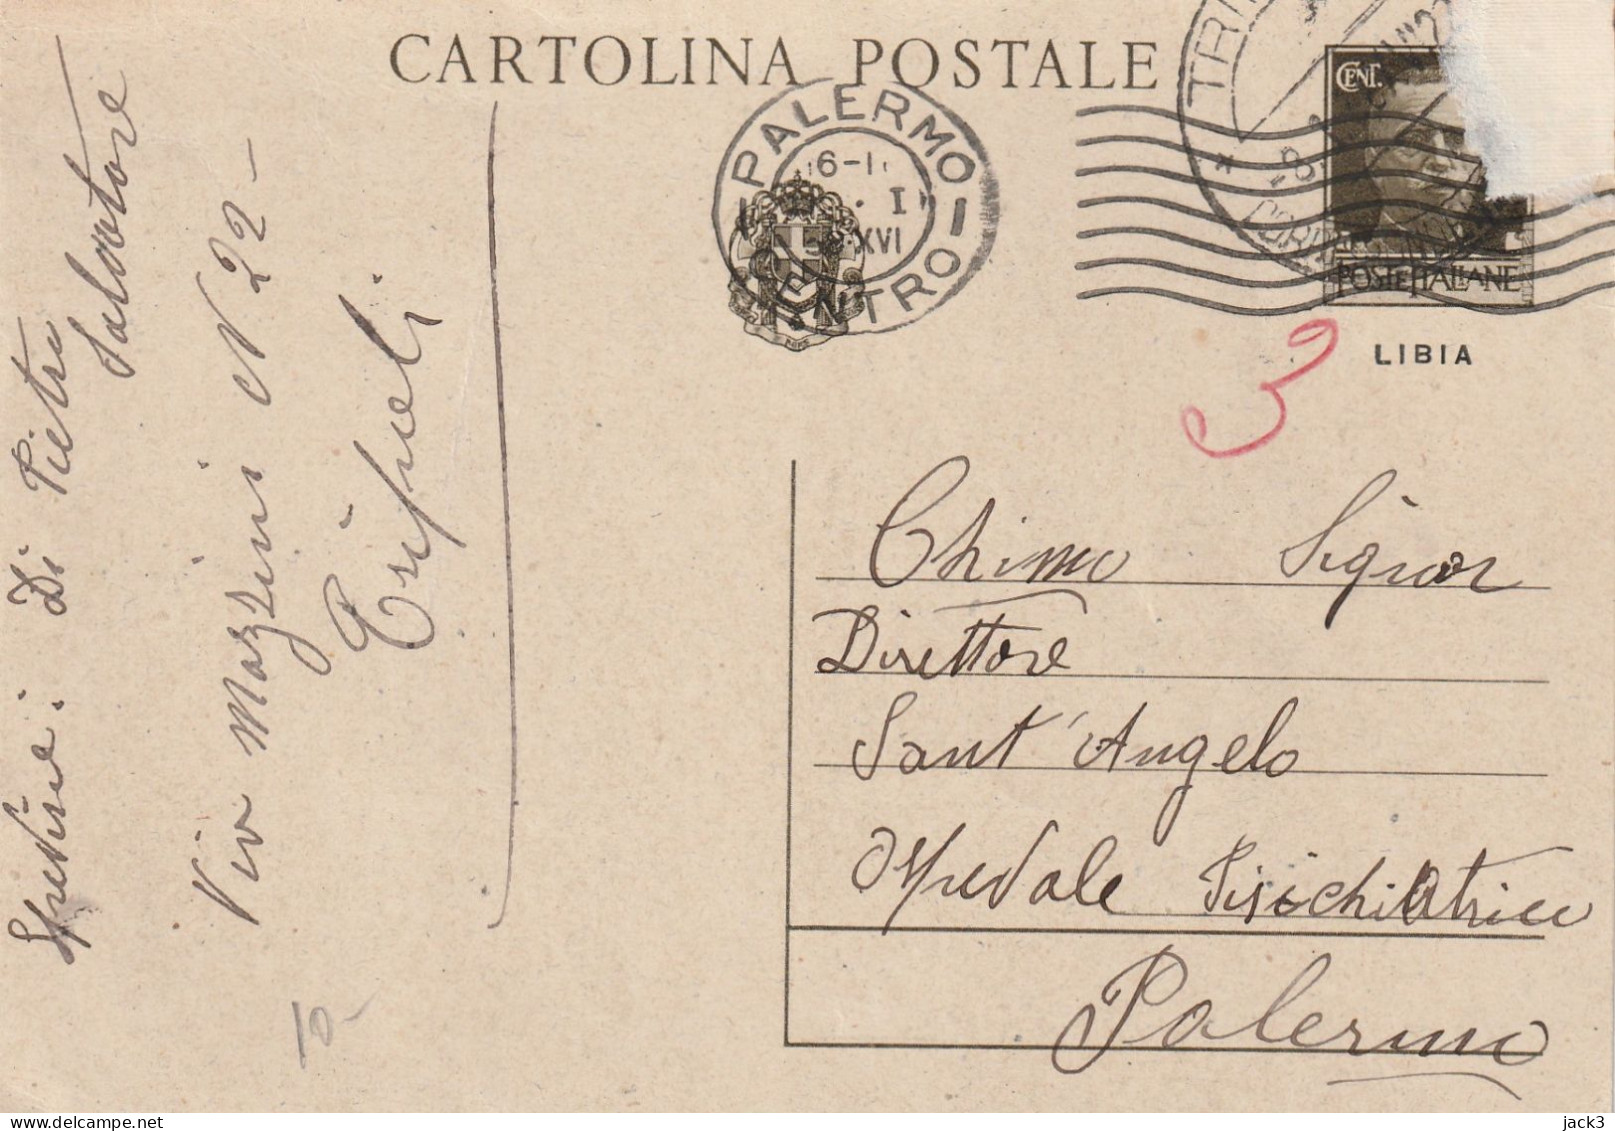 CARTOLINA POSTALE
PALERMO
CENTRO
16-1
I
XVI
TRI
8
CENT.
POSTE ITALIANE
LIBIA
3
Spedisce: Di Pietro
Salvatore
Via Mazzini N 22 -
Tripoli
Chimo Signor
Direttore
Sant'Angelo
Ospedale Pisichiatrico
Palermo
delcampe.net
jack3